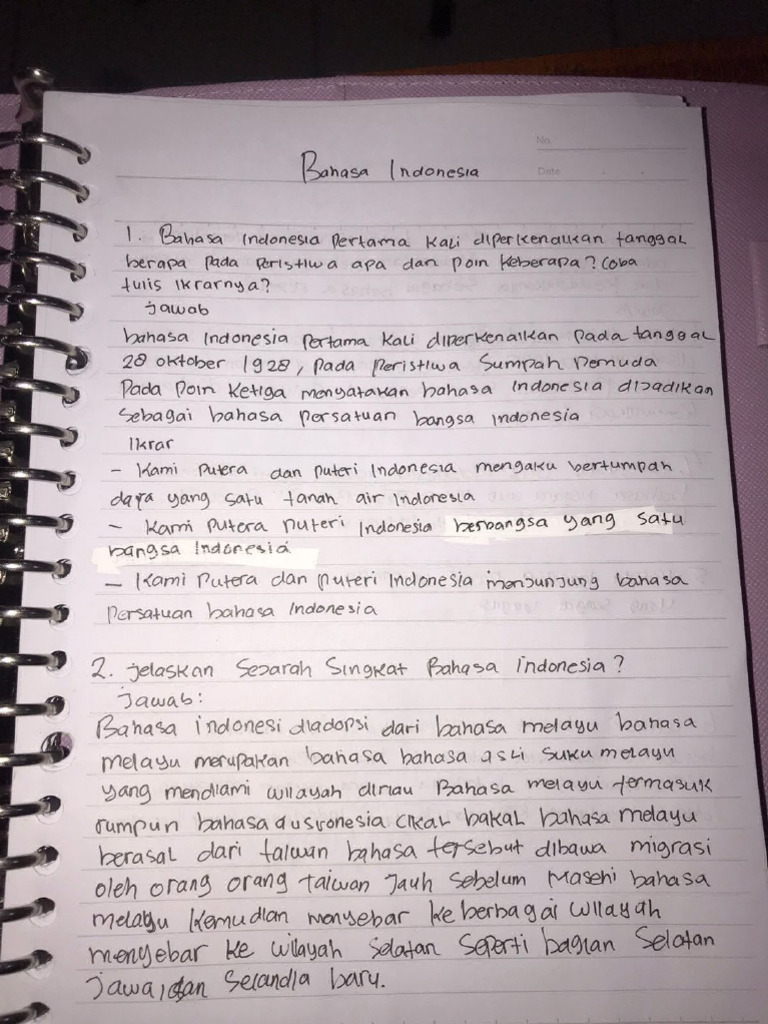 No.
Date
Bahasa Indonesia
1. Bahasa Indonesia Pertama Kali diperkenalkan tanggal
berapa pada peristiwa apa dan poin keberapa? Coba
tulis ikrarnya?
Jawab
bahasa Indonesia Pertama Kali diperkenalkan pada tanggal
28 oktober 1928, pada Peristiwa Sumpah Pemuda
Pada Poin Ketiga menyatakan bahasa Indonesia dijadikan
Sebagai bahasa Persatuan bangsa Indonesia
Ikrar
- Kami Putera dan puteri Indonesia mengaku bertumpah
dara yang satu tanah air Indonesia
- Kami Putera puteri Indonesia berbangsa yang satu
bangsa Indonesia
- Kami Putera dan puteri Indonesia menjunjung bahasa
Persatuan bahasa Indonesia
2. Jelaskan Sejarah Singkat Bahasa indonesia?
Jawab:
Bahasa indonesi diadopsi dari bahasa melayu bahasa
melayu merupakan bahasa bahasa asli suku melayu
yang mendiami wilayah diriau Bahasa melayu termasuk
rumpun bahasa austronesia cikal bakal bahasa melayu
berasal dari taiwan bahasa tersebut dibawa migrasi
oleh orang orang taiwan Jauh sebelum Masehi bahasa
melayu Kemudian menyebar ke berbagai wilayah
menyebar ke wilayah selatan seperti bagian Selatan
Jawa, dan Selandia baru.